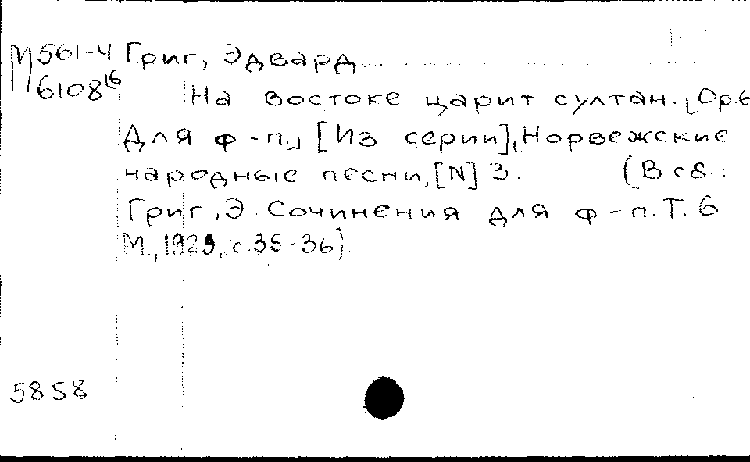 М 561-4 Григ, Эдвард
6108 16
На востоке царит султан. [Ор. 6
Для ф-п., [Из серии], Норвежские
народные песни, [N] 3. (В сб.:
Григ, Э. Сочинения для ф-п. Т. 6
М., 1929, с. 35-36).
5858